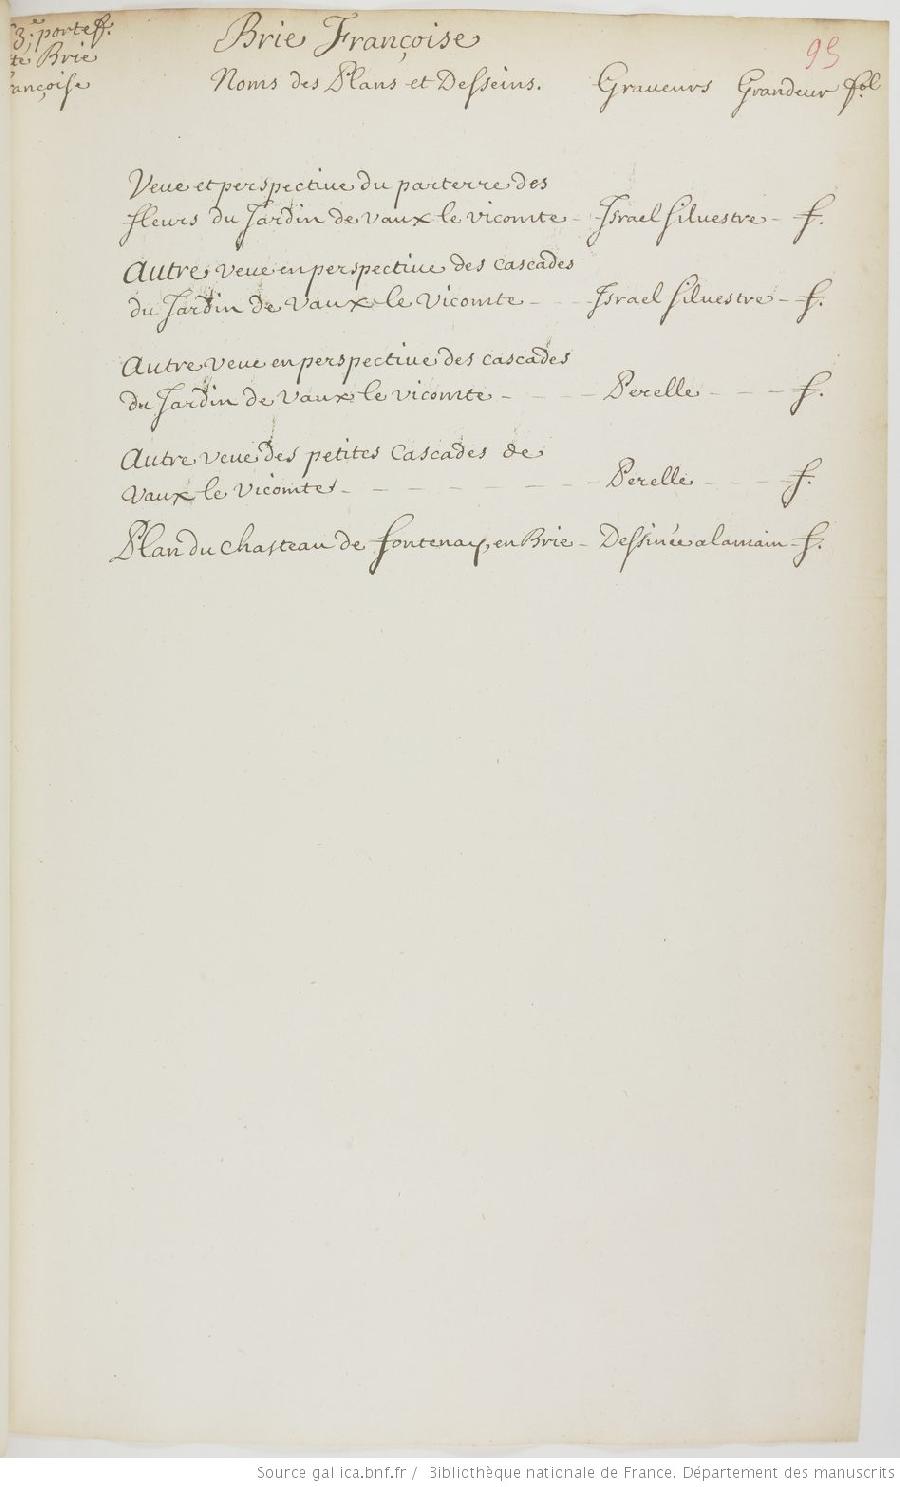 3.e portef.
te Brie
ançoise
Brie Françoise
95
Noms des Plans et Desseins. Graveurs Grandeur fol
Veue et perspective du parterre des
fleurs du Jardin de vaux le vicomte - Israel Silvestre - f.
Autre veue en perspective des cascades
du Jardin de vaux le vicomte - - Israel Silvestre - f.
Autre veue en perspective des cascades
du Jardin de vaux le vicomte - - - Perelle - - - f.
Autre veue des petites Cascades de
vaux le vicomte - - - - - - - Perelle - - - f.
Plan du chasteau de fontenay en Brie - Dessinée a la main - f.
Source gallica.bnf.fr / Bibliothèque nationale de France. Département des manuscrits